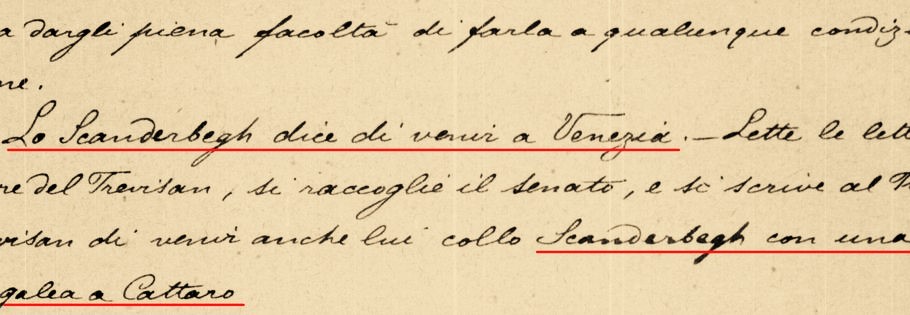 a dargli piena facoltà di farla a qualunque condiz-
ne.
Lo Scanderbegh dice di venir a Venezia. — Lette le lett
re del Trevisan, si raccoglie il senato, e si scrive al
visan di venir anche lui collo Scanderbegh con una
galea a Cattaro